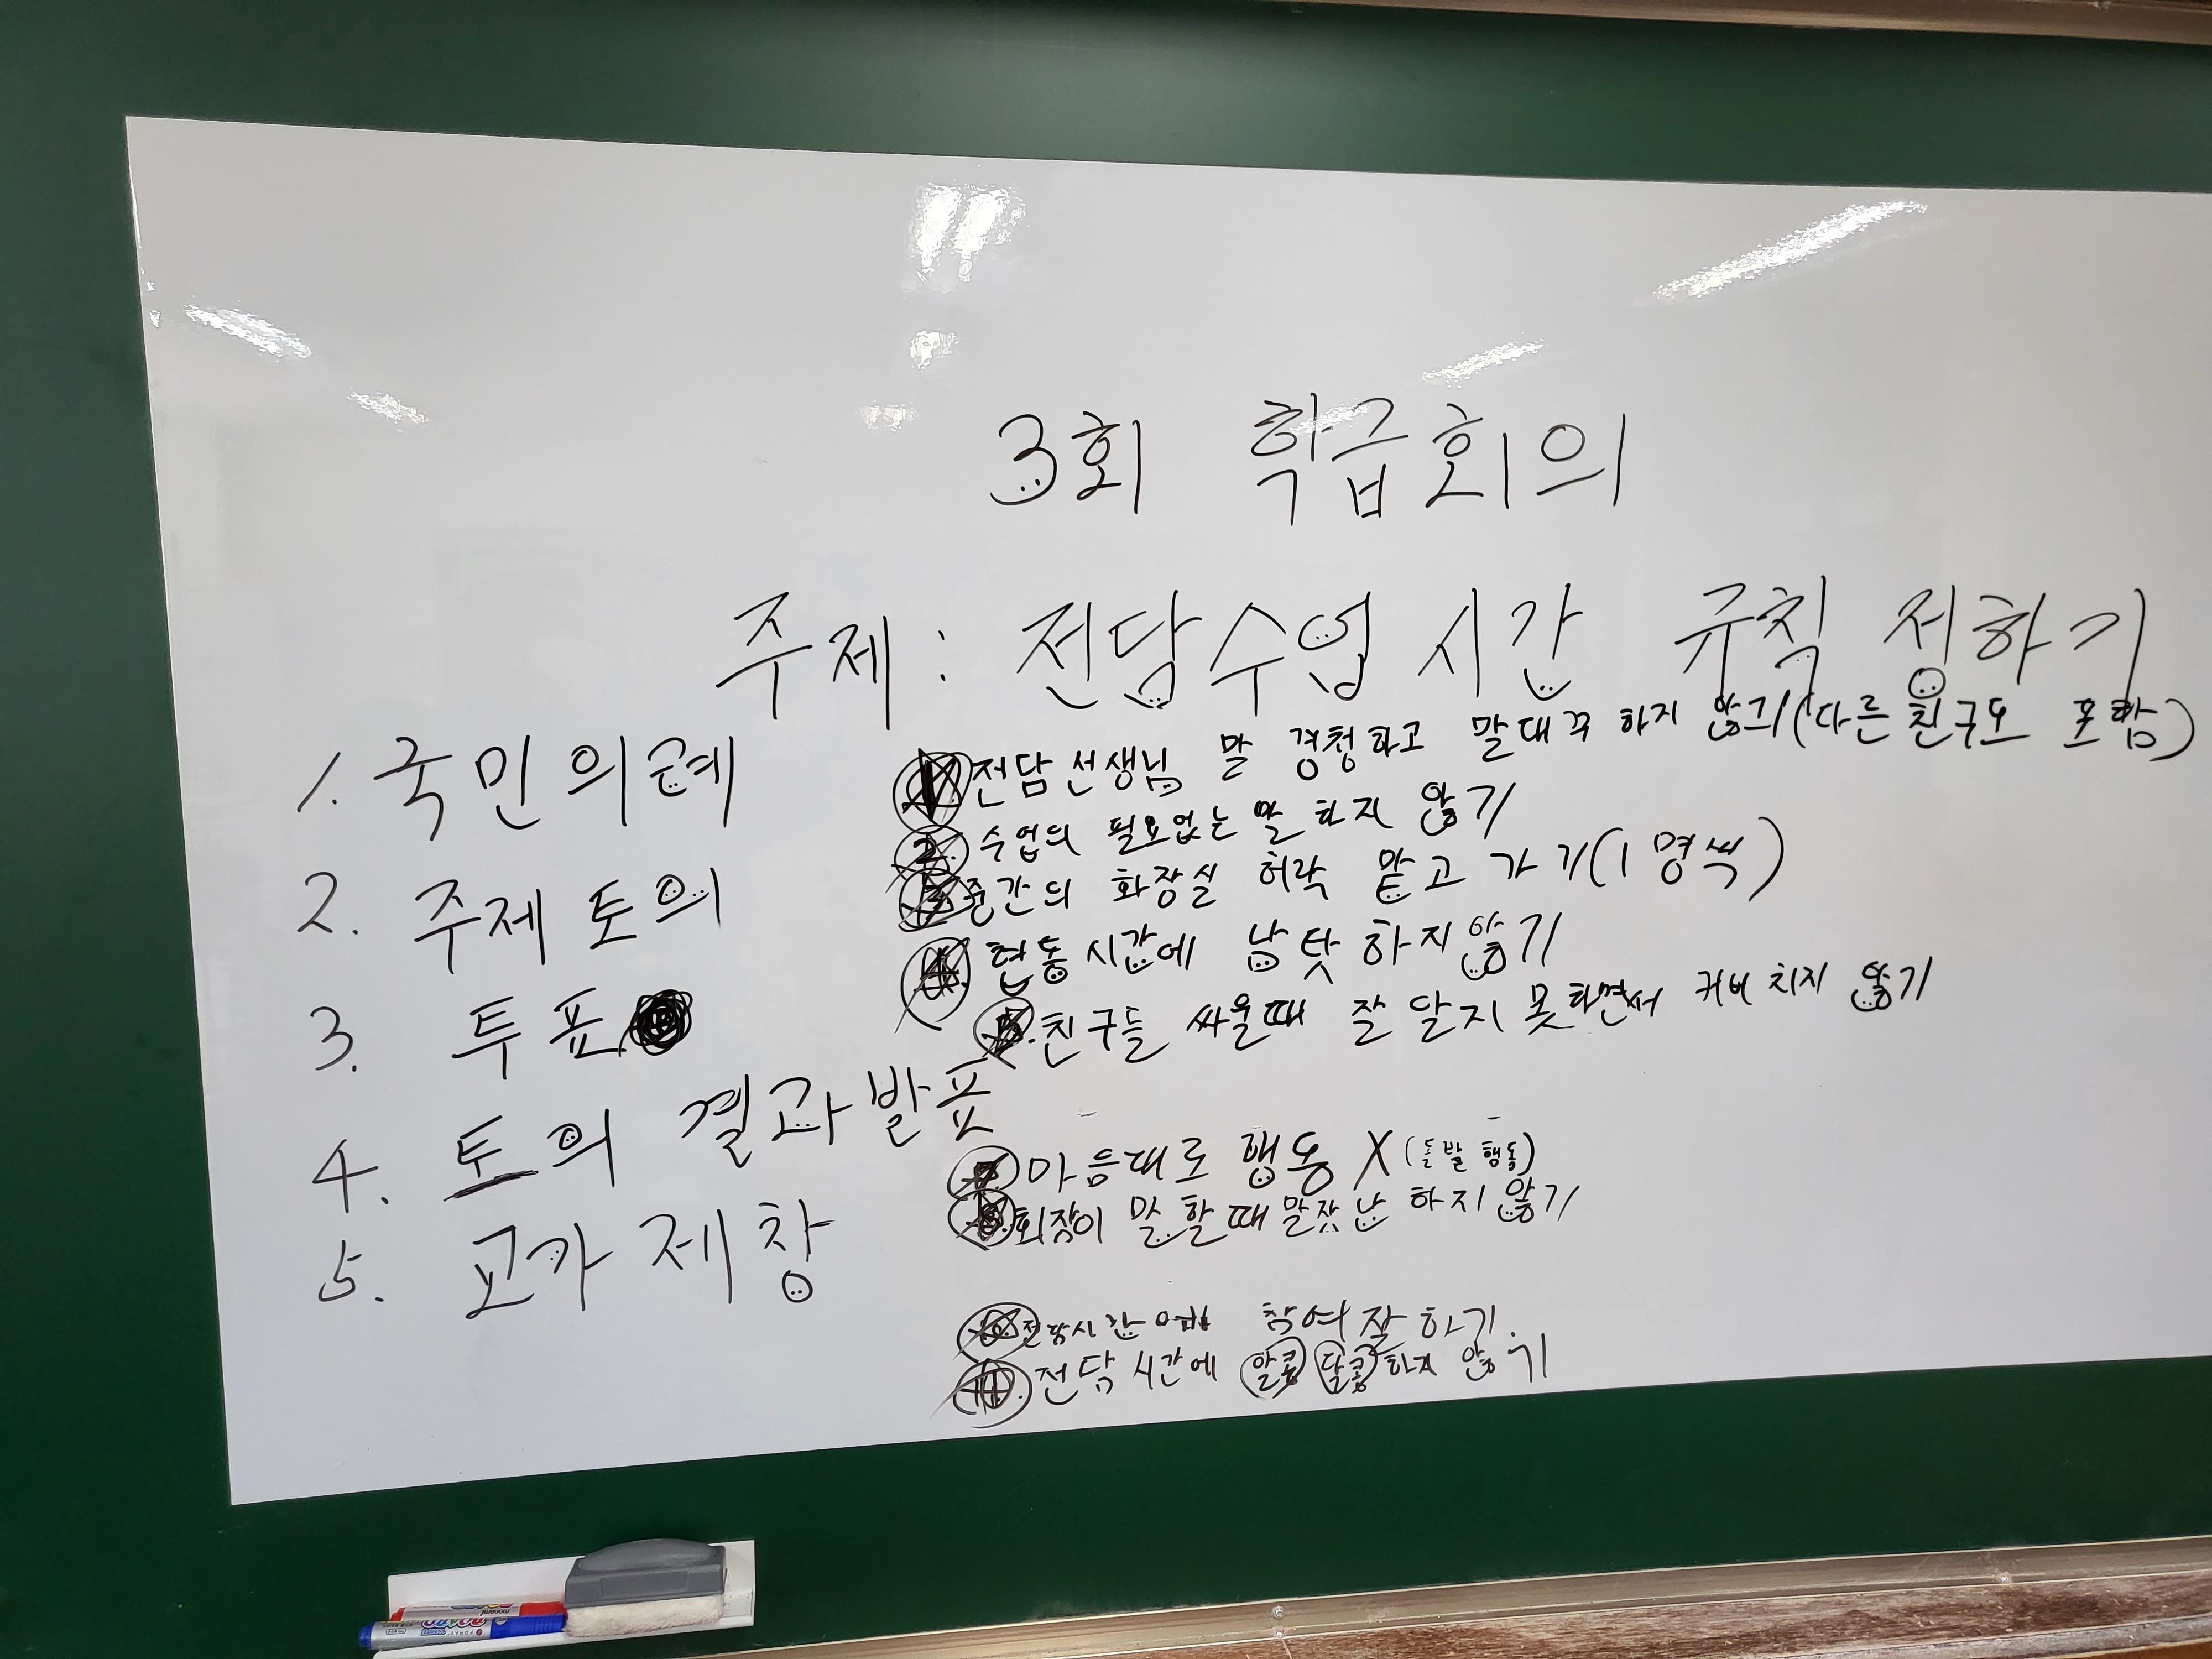 3회 학급회의
주제 : 전담수업 시간 규칙 정하기
1. 국민의례
2. 주제 토의
3. 투표
4. 토의 결과 발표
5. 교가 제창
1 전담선생님 말 경청하고 말대꾸 하지 않기(다른 친구도 포함)
2. 수업의 필요없는 말 하지 않기
3 중간의 화장실 허락 맡고 가기(1명씩)
4. 협동 시간에 남탓 하지 않기
5. 친구들 싸울때 잘 알지 못하면서 커버 치지 않기
7. 마음대로 행동 X (돌발 행동)
8. 회장이 말 할때 말장난 하지 않기
전담시간 참여 잘 하기
11. 전담 시간에 알콩 달콩 하지 않기
monami
FORAY